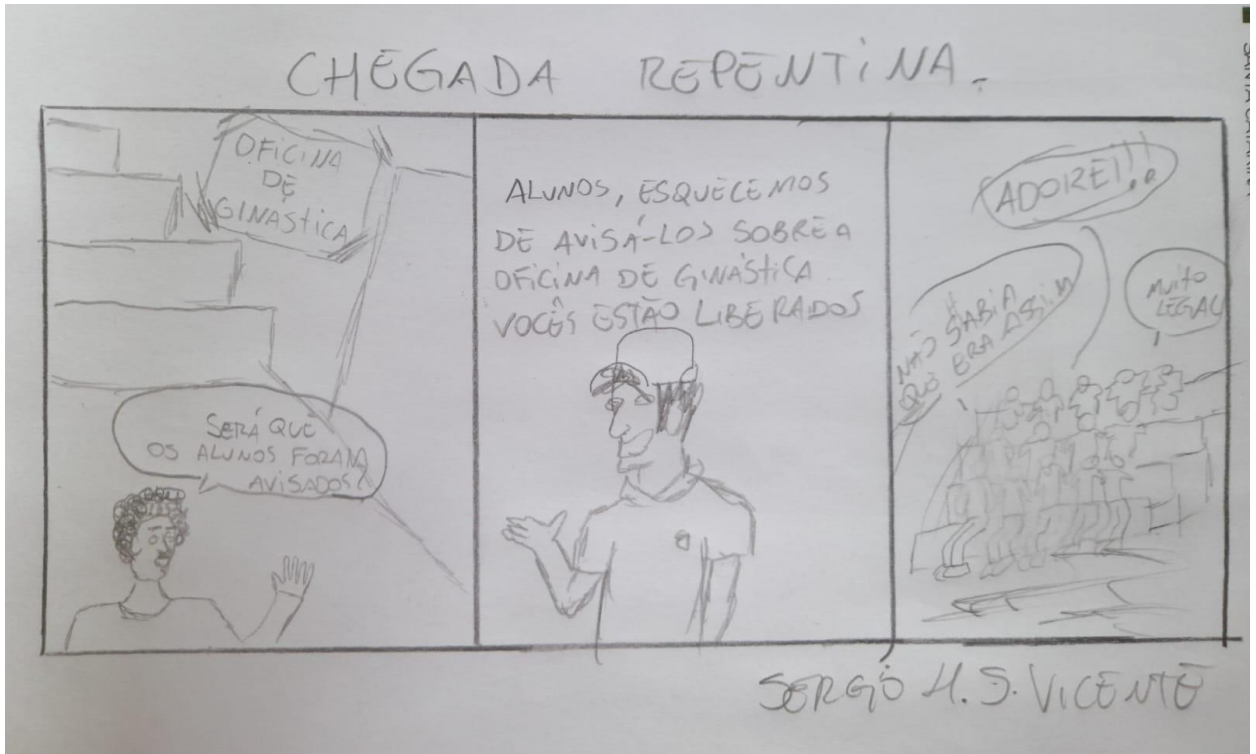 CHEGADA REPENTINA.
OFICINA
DE
GINASTICA
SERÁ QUE
OS ALUNOS FORAM
AVISADOS?
ALUNOS, ESQUECEMOS
DE AVISÁ-LOS SOBRE A
OFICINA DE GINÁSTICA
VOCÊS ESTÃO LIBERADOS
ADOREI!!
NÃO SABIA
QUE ERA ASSIM
MUITO
LEGAL
SERGIO H. S. VICENTE
SANTA CATARINA